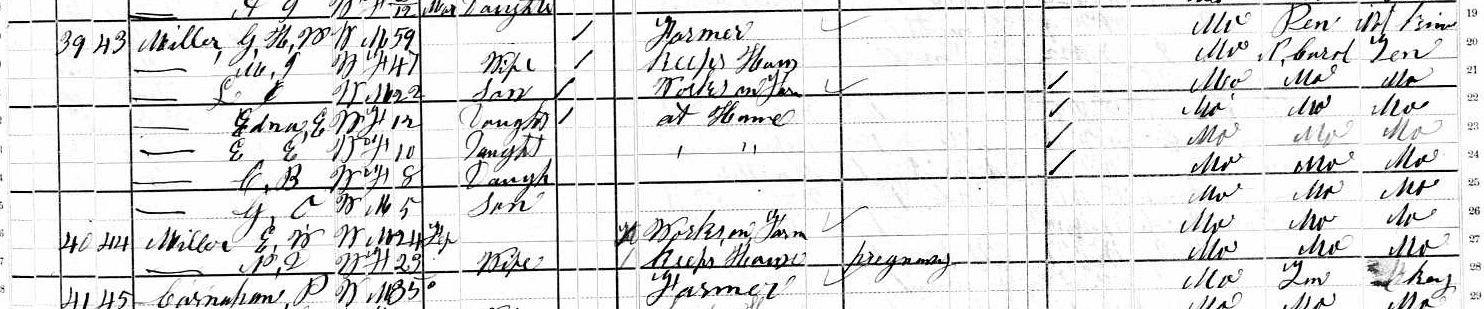 A G W F 12 Mar Daughte 19
39 43 Miller, G, H, W W M 59 / Farmer Mo Pen 20
M, J W F 47 Wife / Keeps Hous Mo S, Carol Ten 21
L C W M 22 Son / Works on Far / Mo Mo Mo 22
Edna, E W F 12 Daught / at Home / Mo Mo Mo 23
E E W F 10 Daught " " / Mo Mo Mo 24
C, B W F 8 Daugh / Mo Mo Mo 25
G, C W M 5 Son Mo Mo Mo 26
40 44 Miller E, W W M 24 Works, on, Farm Mo Mo Mo 27
W F 23 Wife / Keeps House pregnancy Mo Mo Mo 28
41 45 Carnahan, P W M 35 Farmer Mo Key 29
Mo Mo Mo